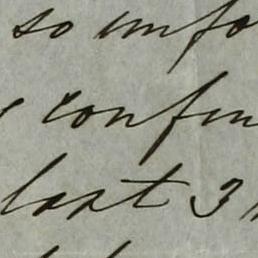 so unfo
confin
last 3